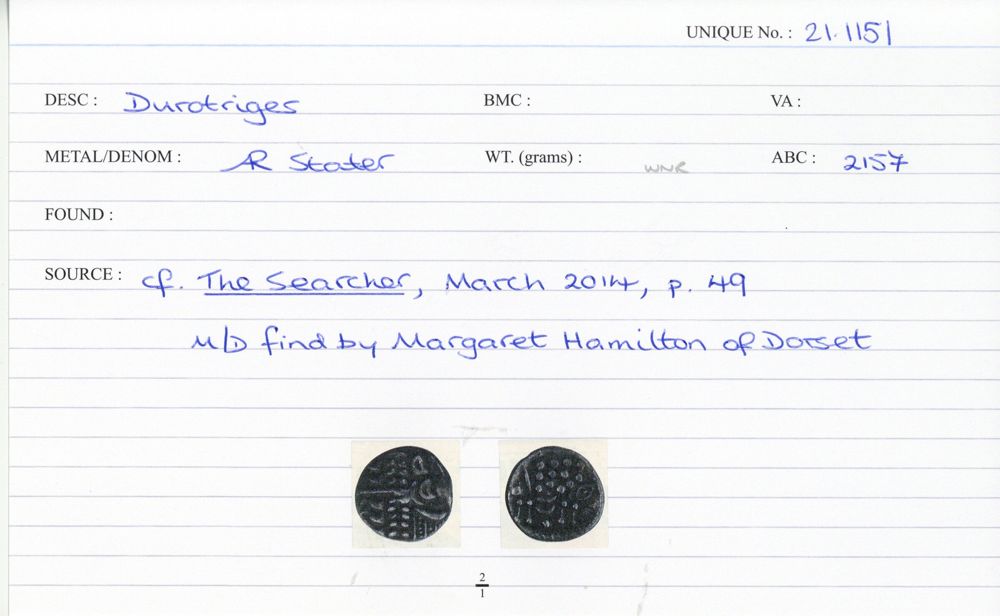 UNIQUE No. : 21.1151
DESC : Durotriges BMC : VA :
METAL/DENOM : AR Stater WT. (grams) : WNR ABC : 2157
FOUND :
SOURCE : cf. The Searcher, March 2014, p. 49
M/D find by Margaret Hamilton of Dorset
2
1